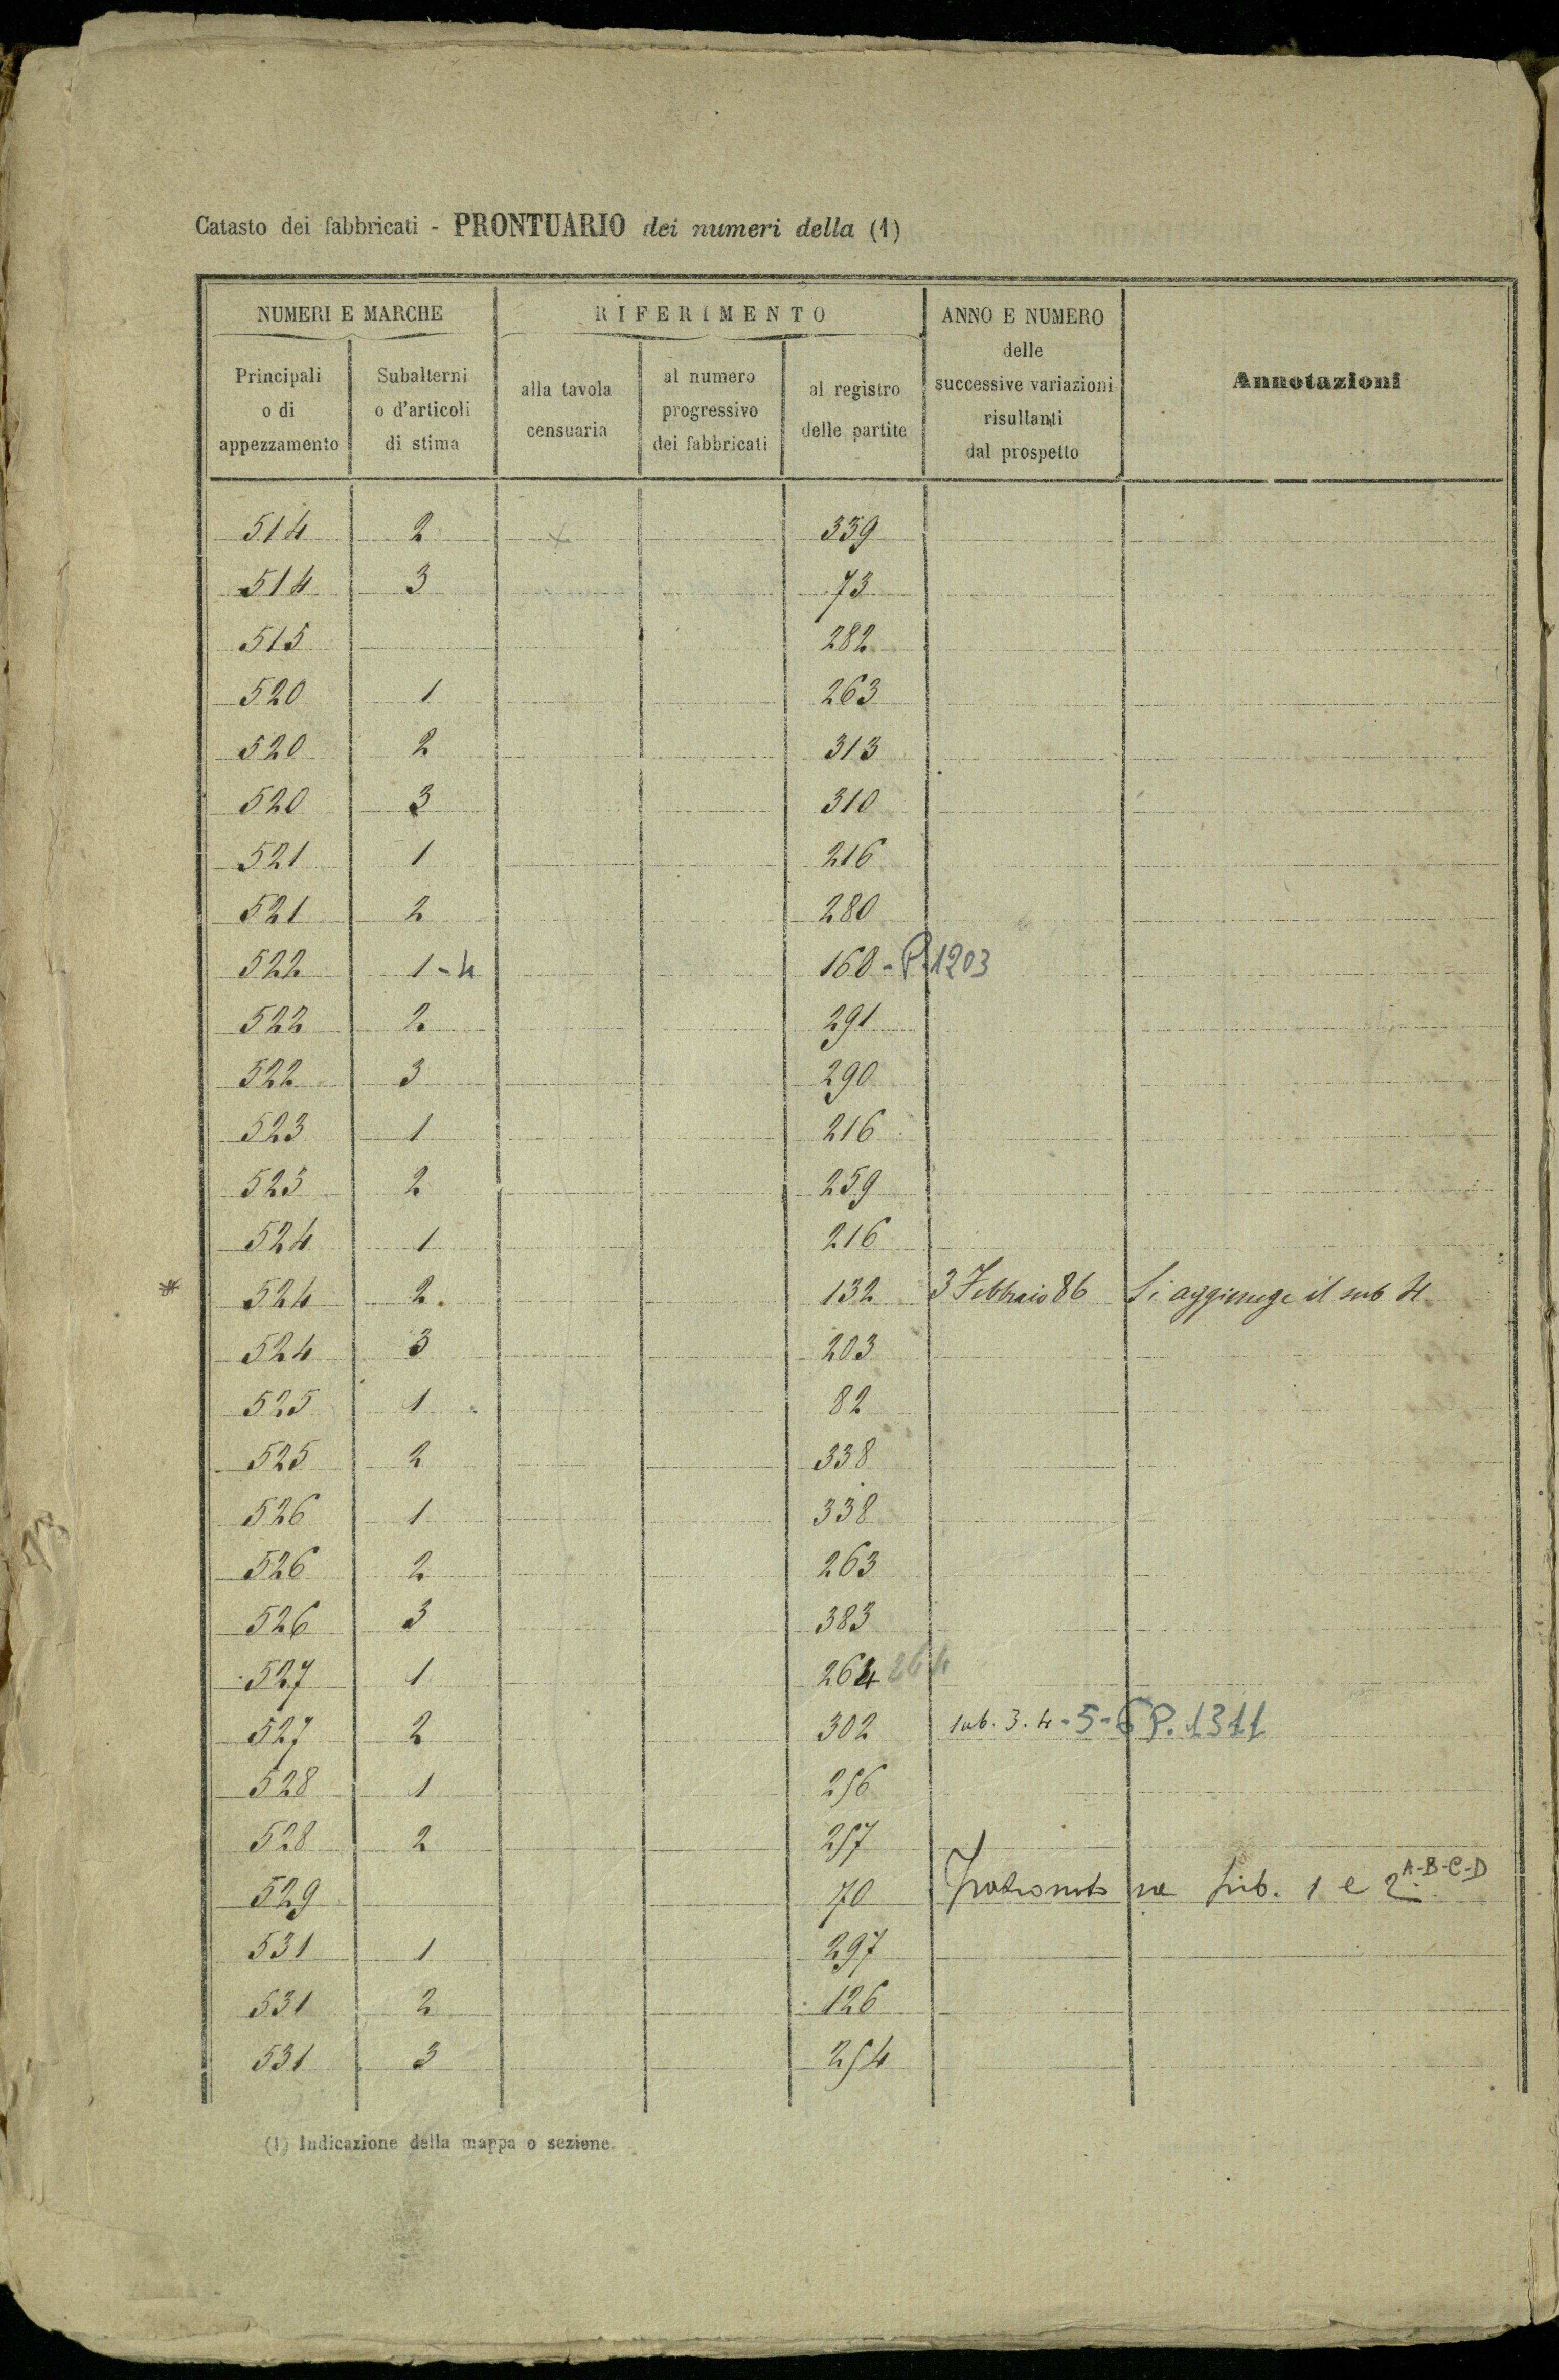 Catasto dei fabbricati - PRONTUARIO dei numeri della (1)
NUMERI E MARCHE
RIFERIMENTO
ANNO E NUMERO
delle
successive variazioni
risultanti
dal prospetto
Annotazioni
Principali
o di
appezzamento
Subalterni
o d'articoli
di stima
alla tavola
censuaria
al numero
progressivo
dei fabbricati
al registro
delle partite
514 2 339
514 3 73
515 282
520 1 263
520 2 313
520 3 310
521 1 216
521 2 280
522 1-4 160 - P. 1203
522 2 291
522 3 290
523 1 216
523 2 259
524 1 216
* 524 2. 132 3 Febbraio 86 Si aggiunge il sub 4
524 3 203
525 1 82
525 2 338
526 1 338
526 2 263
526 3 383
527 1 264 264
527 2 302 sub. 3. 4 - 5 - 6 P. 1311
528 1 256
528 2 257
529 70 Frazionato in sub. 1 e 2 A-B-C-D
531 1 297
531 2 126
531 3 254
(1) Indicazione della mappa o sezione.